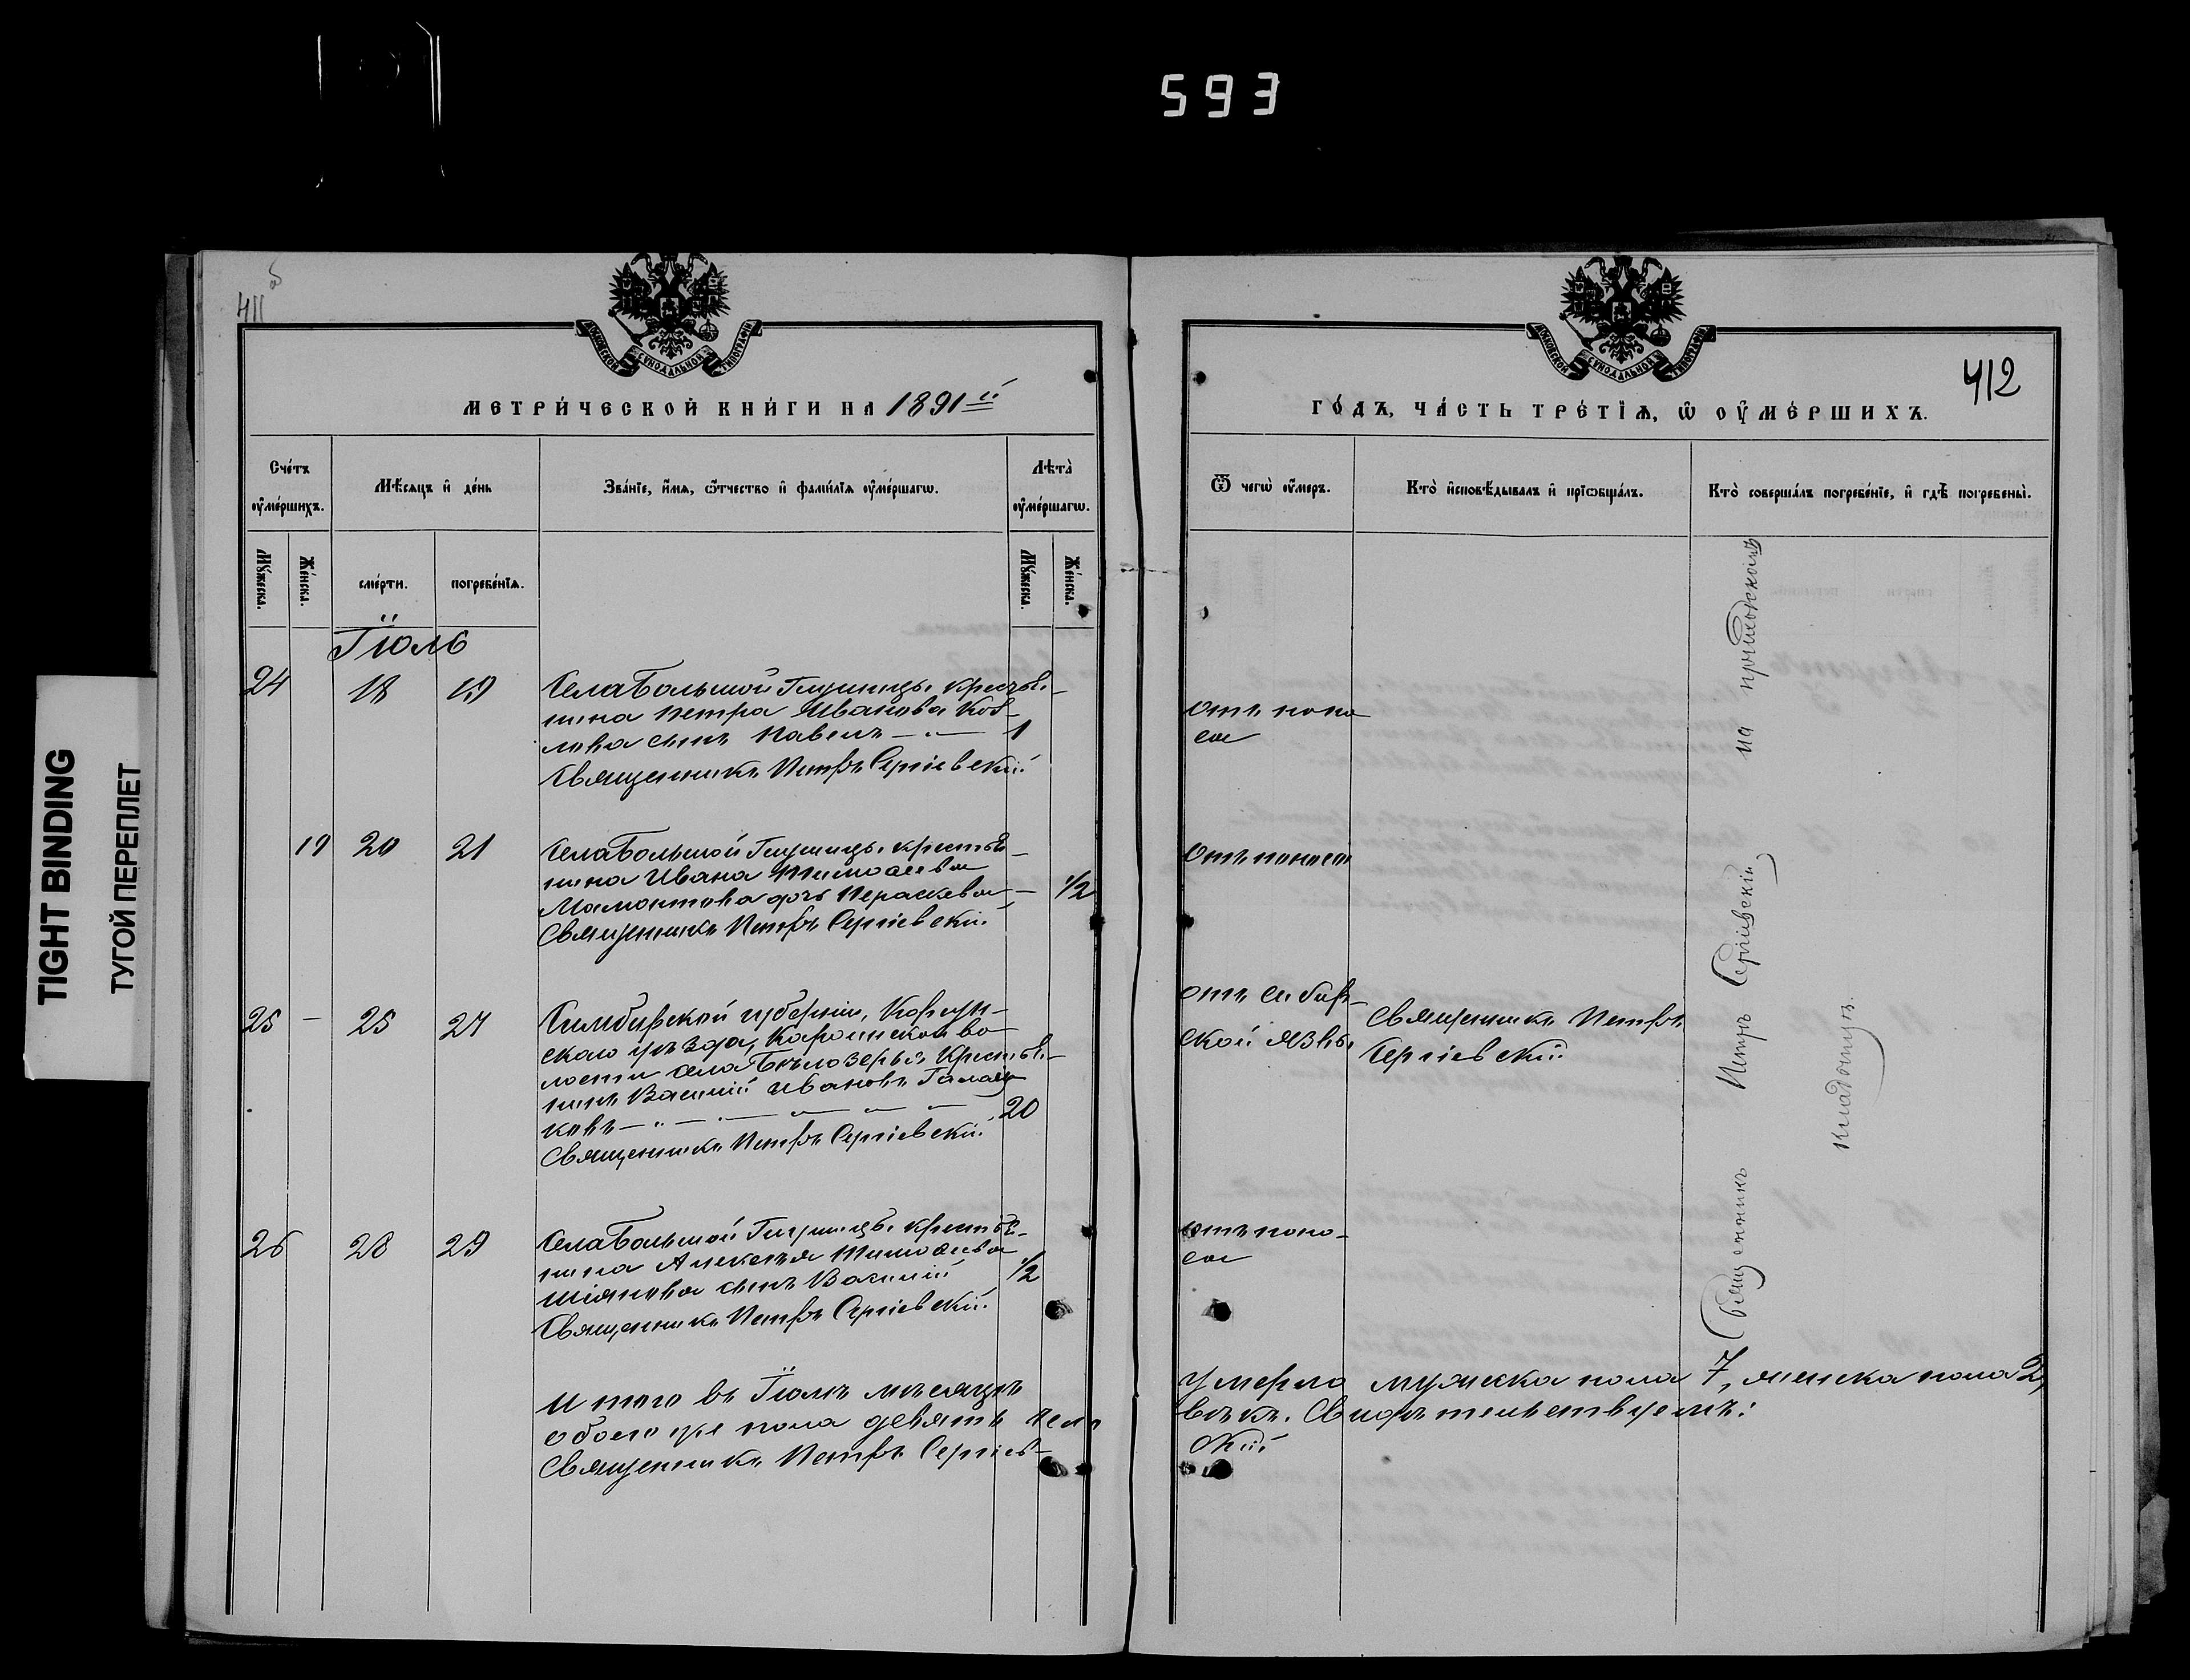 593
TIGHT BINDING
ТУГОЙ ПЕРЕПЛЕТ
411
б
МОСКОВСКОЙ СѴНОДАЛЬНОЙ ТИПОГРАФІИ
МЕТРИ́ЧЕСКОЙ КНИ́ГИ НА 1891й
Сче́тъ ᲂу҆ме́ршихъ.
Мѣ́сяцъ и҆ де́нь
Зва́нїе, и҆́мѧ, ѻ҆́тчество и҆ фами́лїѧ ᲂу҆ме́ршагѡ.
Лѣта̀ ᲂу҆ме́ршагѡ.
Мꙋ́жеска.
Же́нска.
сме́рти.
погребе́нїѧ.
Мꙋ́жеска.
Же́нска.
Іюль
24 18 19
Села Большой Глушицы крестья-
нина Петра Иванова Коз-
лова сынъ Павелъ 1
Священникъ Петръ Сергіевскій
19 20 21
Села Большой Глушицы крестья-
нина Ивана Тимоѳеева
Мамонтова дочь Параскева 1/2
Священникъ Петръ Сергіевскій
25 – 25 27
Симбирской губерніи, Корсун-
скаго уѣзда, во-
лости села Бѣлозерья крестья-
нинъ Василій Ивановъ
ковъ 20
Священникъ Петръ Сергіевскій
26 28 29
Села Большой Глушицы крестья-
нина Алексѣя Тимоѳеева
сынъ Василій 1/2
Священникъ Петръ Сергіевскій
Итого въ Іюлѣ мѣсяцѣ
обоего же пола девять чело
Священникъ Петръ Сергіев-
МОСКОВСКОЙ СѴНОДАЛЬНОЙ ТИПОГРАФІИ
412
ГО́ДЪ, ЧА́СТЬ ТРЕ́ТЇѦ, Ѡ҆ ОУ҆МЕ́РШИХЪ.
Ѿ чегѡ̀ ᲂу҆́меръ.
Кто̀ и҆сповѣ́дывалъ и҆ прїѡбща́лъ.
Кто̀ соверша́лъ погребе́нїе, и҆ гдѣ̀ погребены̀.
Отъ поно
са
Отъ поноса
отъ сибир-
ской язвы
Священникъ Петръ
Сергіевскій
отъ поно-
са
Священникъ Петръ Сергіевскій на приходскомъ
кладбищѣ.
умерло мужеска пола 7, женска пола 2,
вѣкъ. Свидѣтельствуемъ:
скій